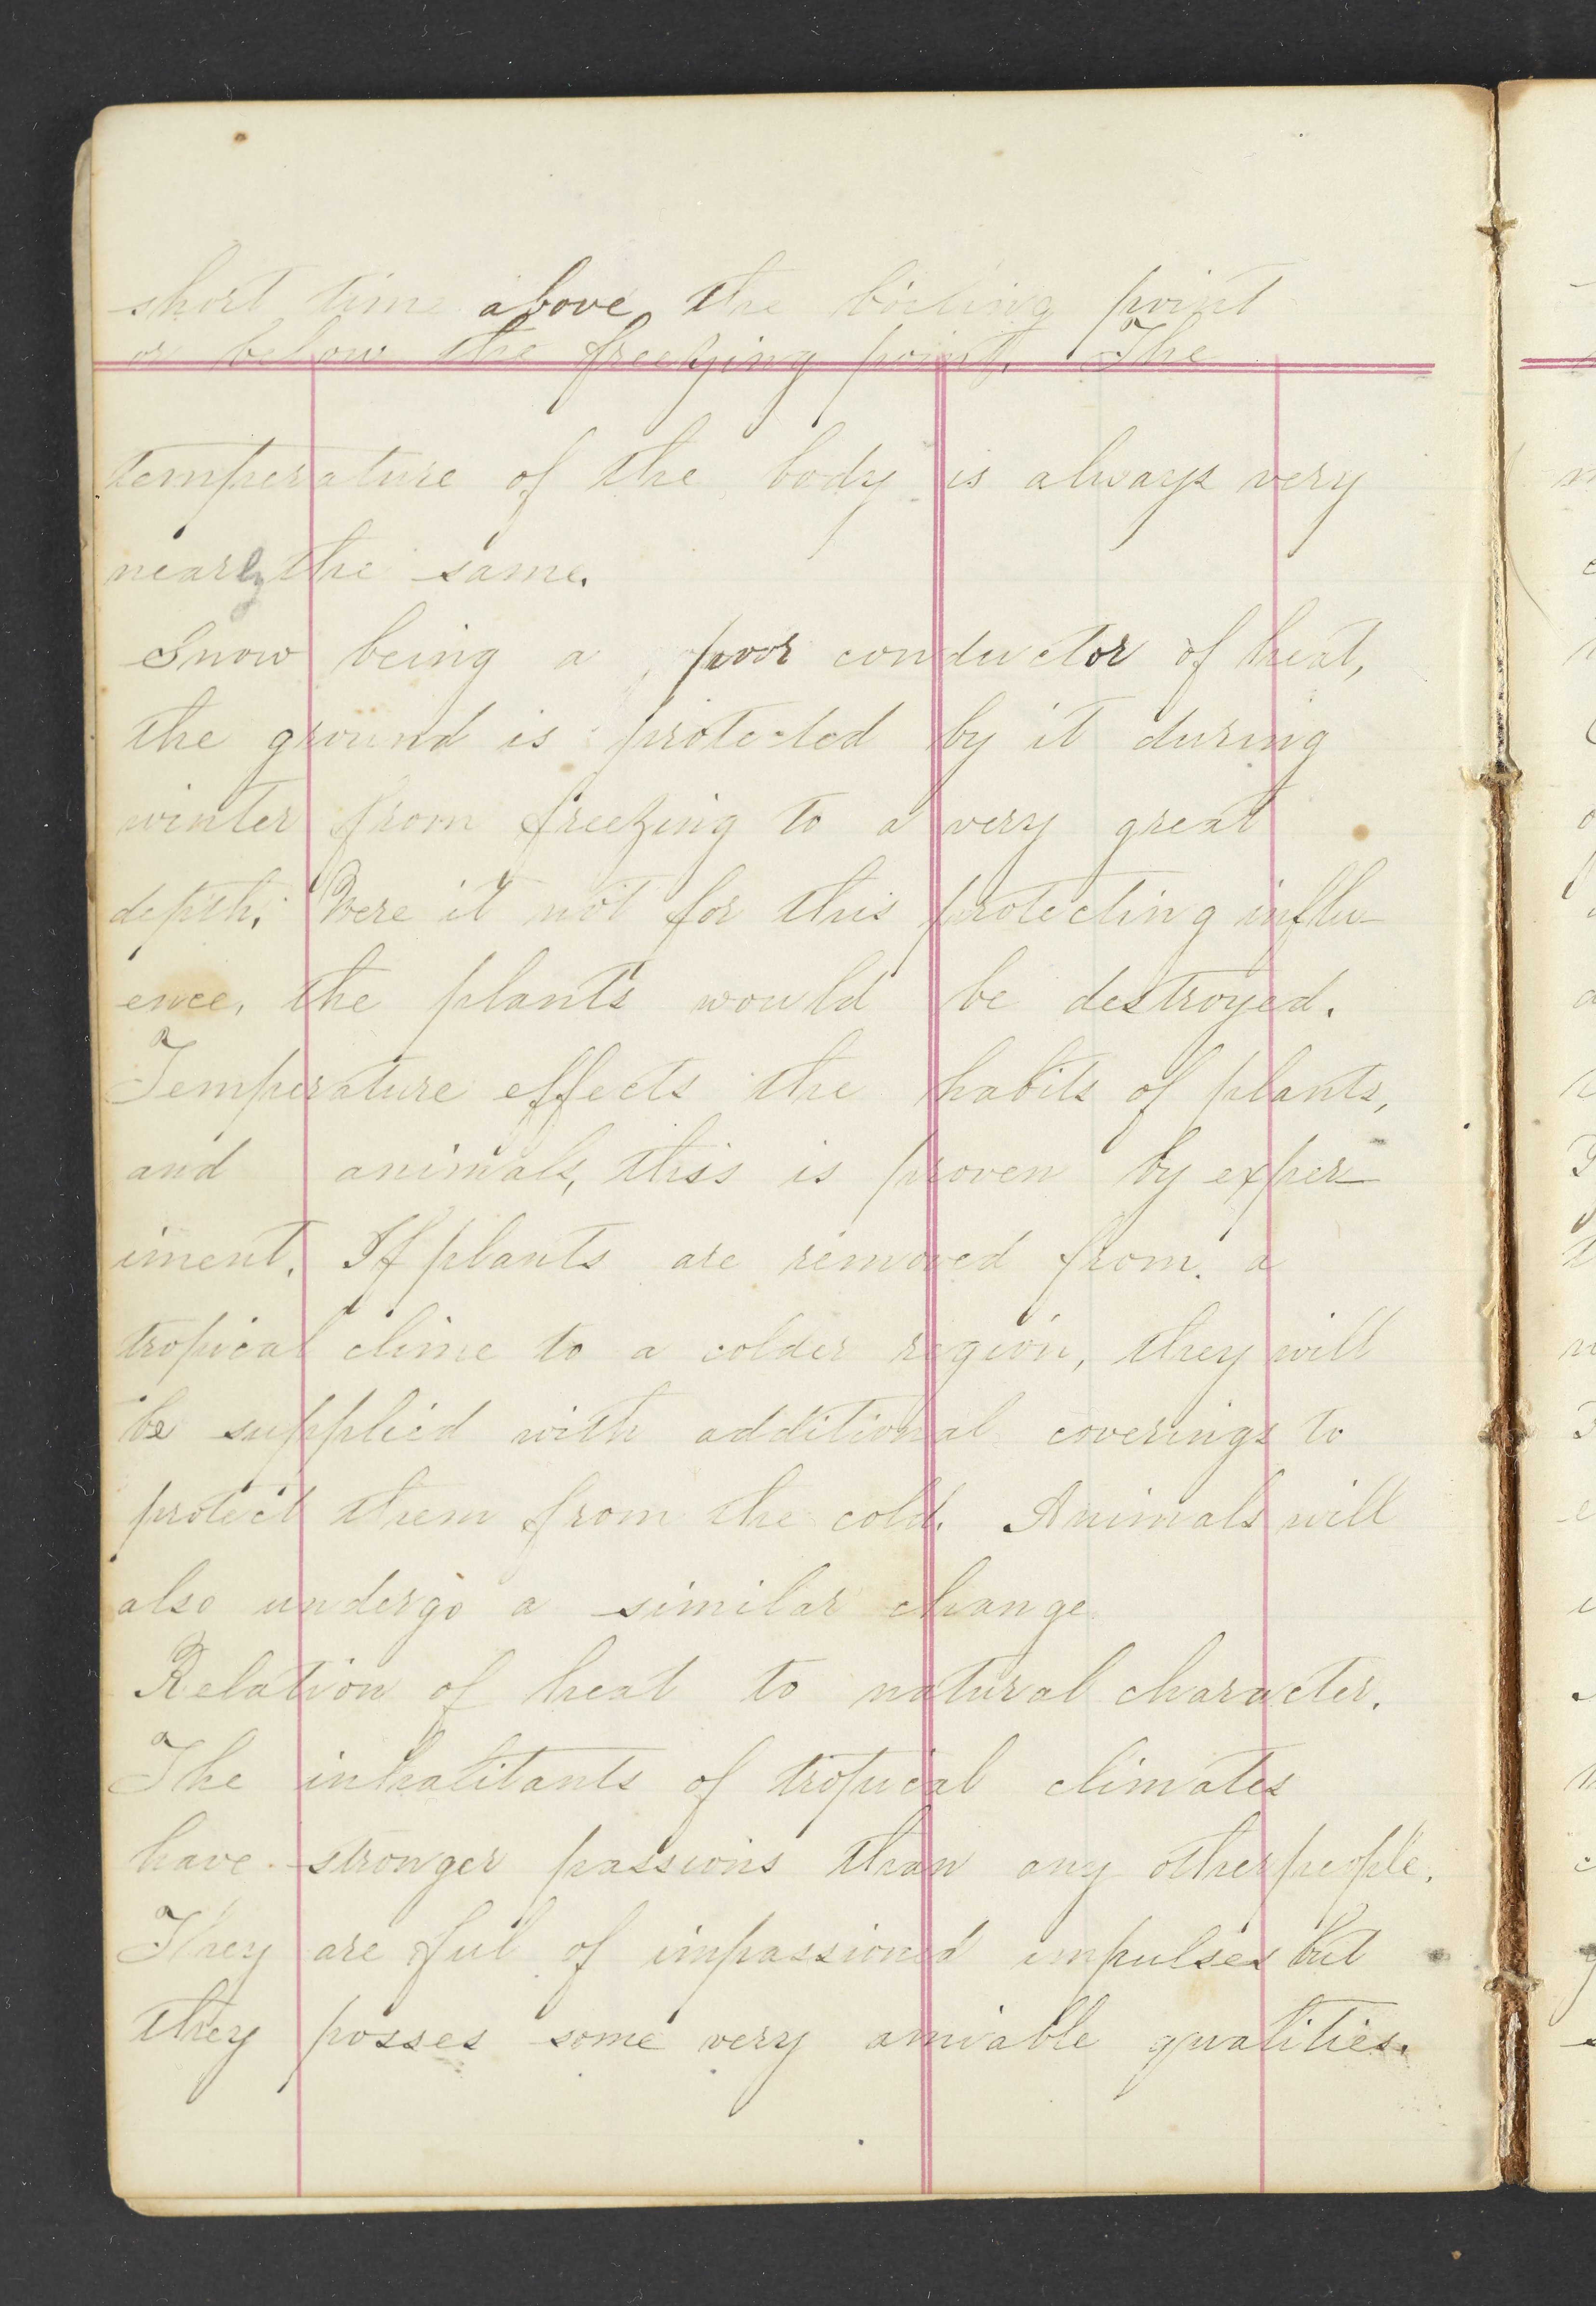 short time above the boiling point
or below the freezing point. The
temperature of the body is always very
nearly the same.
Snow being a poor conductor of heat,
the ground is protected by it during
winter from freezing to a very great
depth. Were it not for this protecting influ-
ence, the plants would be destroyed.
Temperature effects the habits of plants,
and animals, this is proven by exper-
iment. If plants are removed from a
tropical clime to a colder region, they will
be supplied with additional coverings to
protect them from the cold. Animals will
also undergo a similar change
Relation of heat to natural character.
The inhabitants of tropical climates
have stronger passions than any other people.
They are ful of impassioned impulses but
they posses some very amiable qualities.